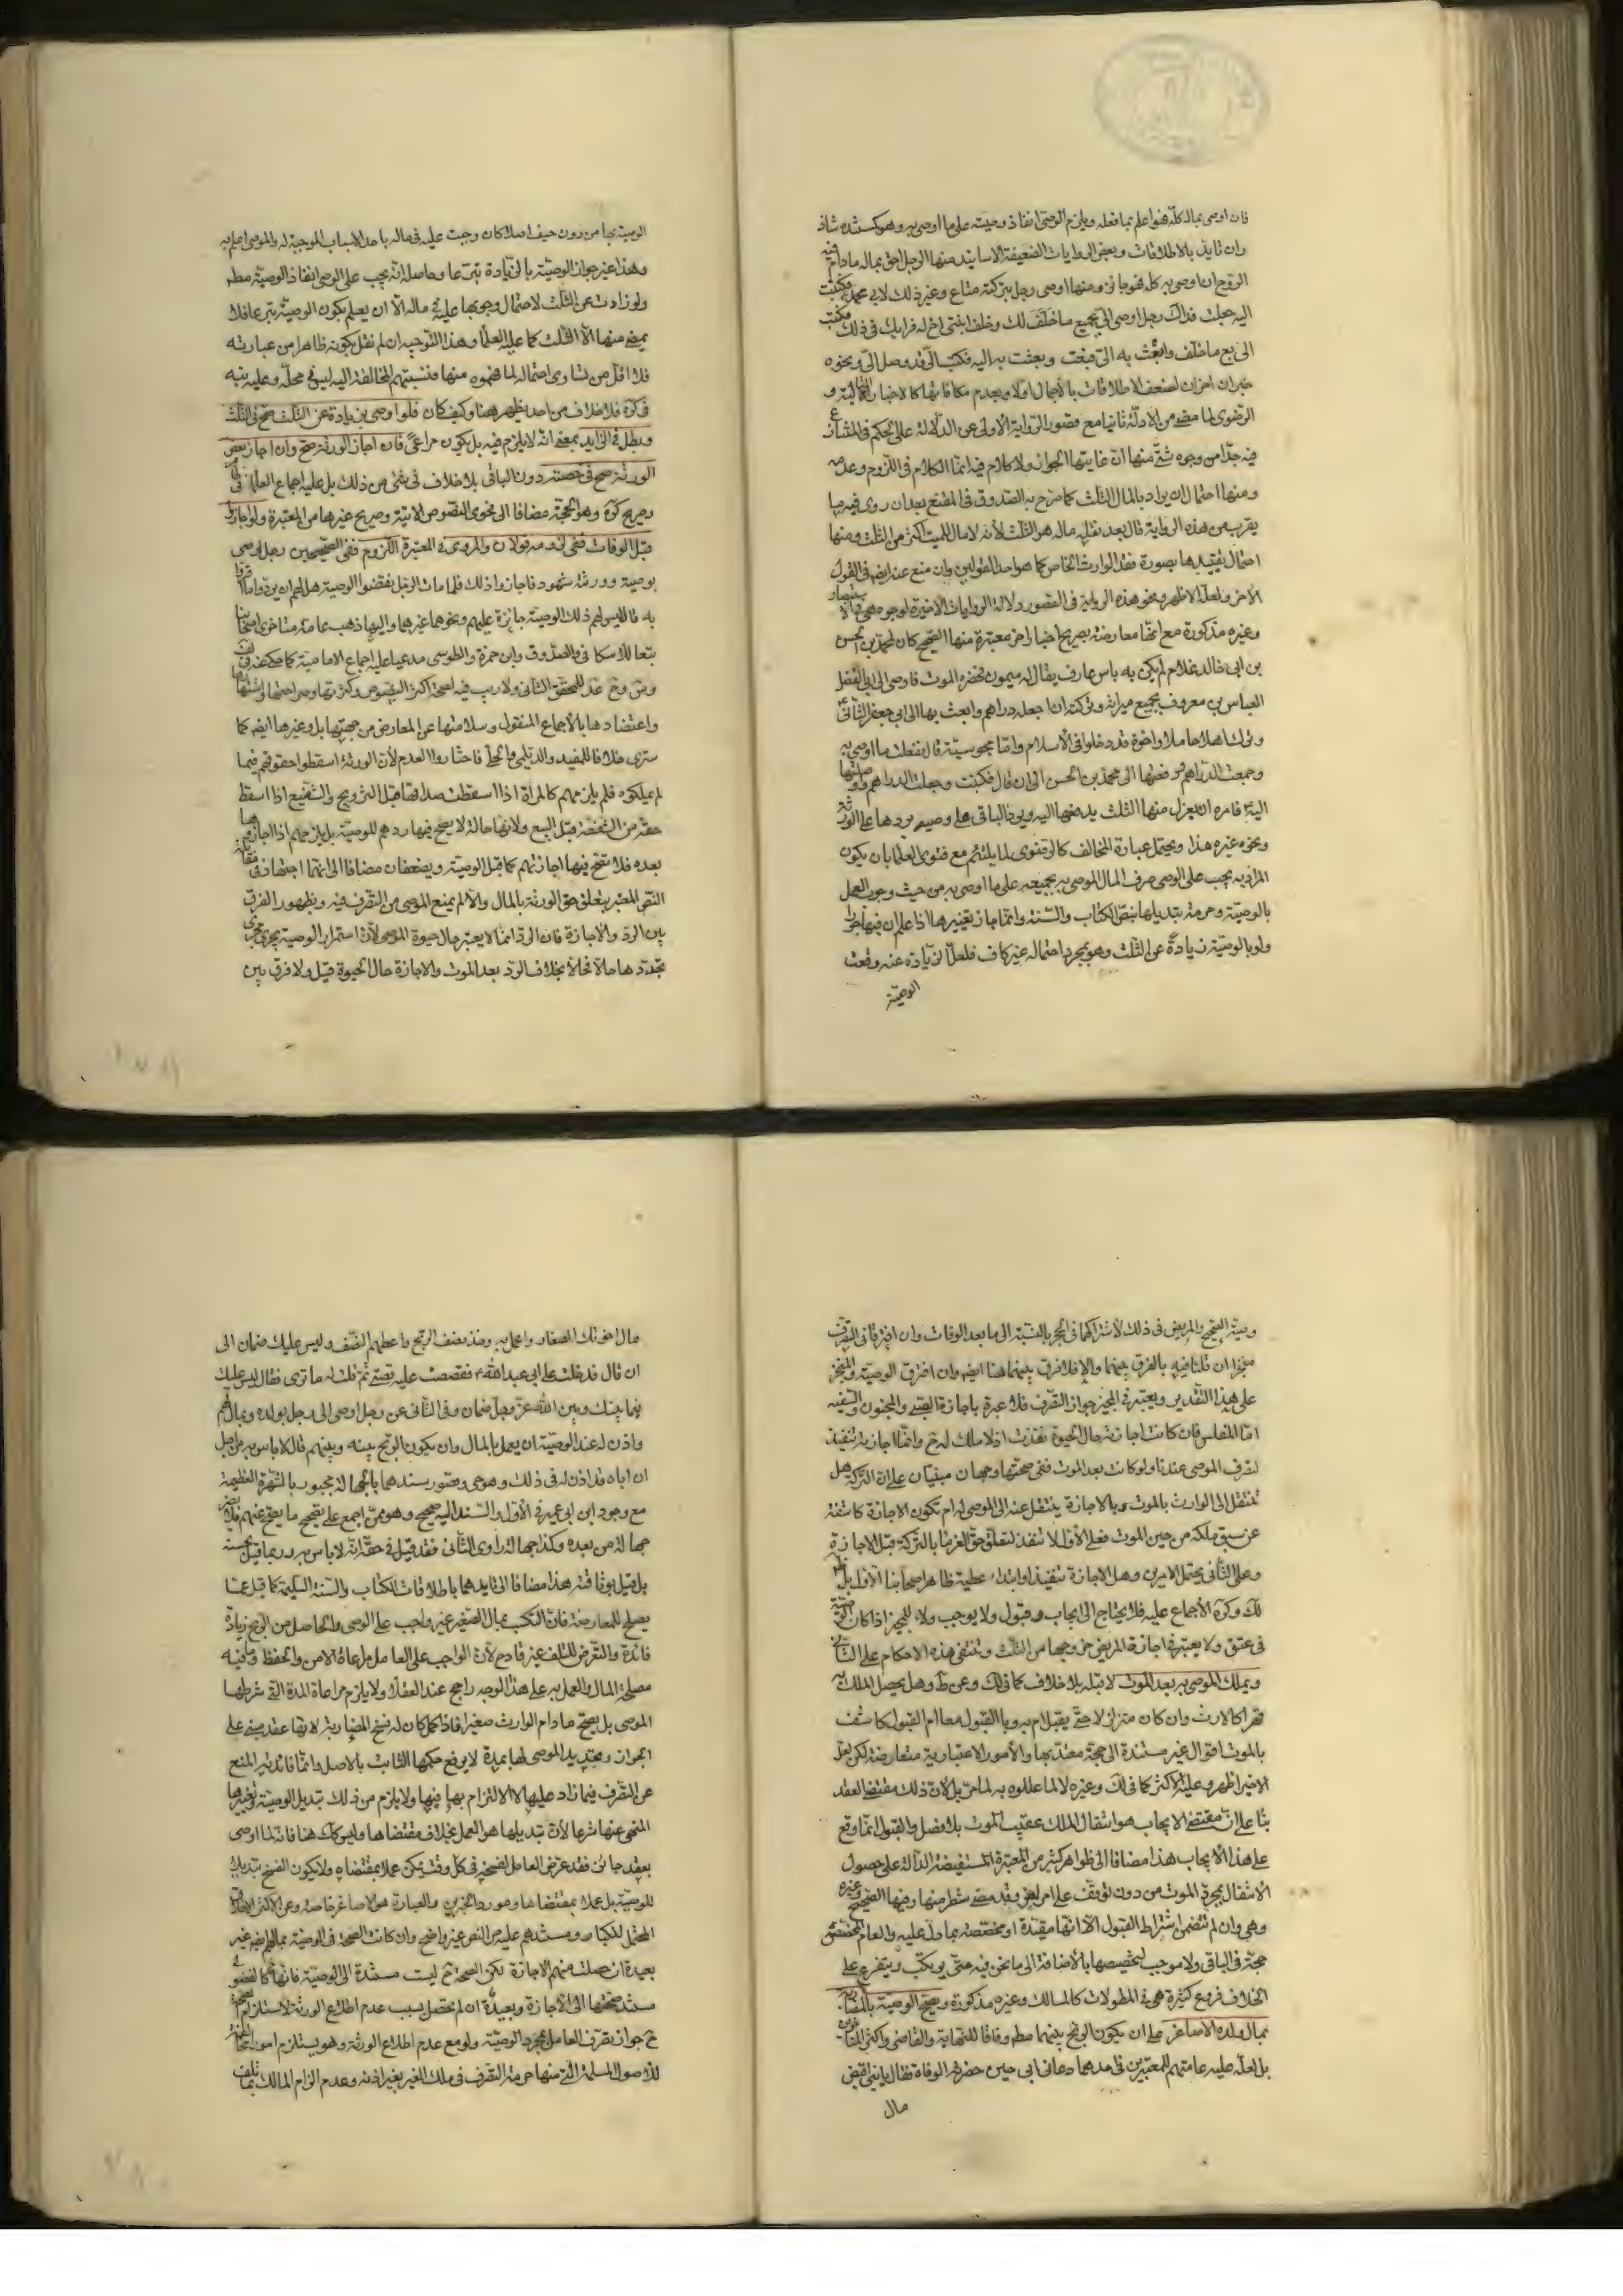 فان اوصى بماله كله فهو اعلم بما فعله ويلزم الوصى انفاذ وصيته على ما اوصى به وهو كسنده شاذ
وان تايد بالاطلاقات وبعض الروايات الضعيفة الاسانيد منها الرجل احق بماله مادام فيه
الروح ان اوصى به كله فهو جائز ومنها اوصى رجل بتركته متاع وغير ذلك لابى محمد فكتبت
اليه جعلت فداك رجل اوصى الى بجميع ما خلف لك وخلف ابنتى اخ له فرايك فى ذلك فكتب
الى بع ما خلف وابعث به الى فبعت وبعثت به اليه فكتب الى قد وصل الى ونحوه
خبران اخران لضعف الاطلاقات بالاجمال اولا وبعدم مكافاتها كالاخبار التالية و
الرضوى لما مضى من الادلة ثانيا مع قصور الرواية الاولى عن الدلالة على الحكم فى المشاز
فيه جدا من وجوه شتى منها ان غايتها الجواز ولا كلام فيه انما الكلام فى اللزوم وعدمه
ومنها احتمال ان يراد بالمال الثلث كما صرح به الصدوق فى المقنع بعد ان روى فيه ما
يقرب من هذه الرواية قال بعد نقله ماله هو الثلث لانه لا مال للميت اكثر من الثلث ومنها
احتمال تقييدها بصورة فقد الوارث الخاص كما هو احد القولين وان منع عنه ايضا فى القول
الاخر ولعله الاظهر ونحو هذه الرواية فى القصور دلالة الروايات الاخيرة لوجوه هى فى
وغيره مذكورة مع انها معارضة بصريح اخبار اخر معتبرة منها الصحيح كان لمحمد بن الحسن
بن ابى خالد غلام لم يكن به باس عارف يقال له ميمون فحضره الموت فاوصى الى ابى الفضل
العباس بن معروف بجميع ميراثه وتركته ان اجعله دراهم وابعث بها الى ابى جعفر الثانى
وترك اهلا حاملا واخوة قد دخلوا فى الاسلام واما مجوسية قال ففعلت ما اوصى به
وجمعت الدراهم ودفعتها الى محمد بن الحسن الى ان قال فكتبت وجعلت الدراهم واوصلتها
اليه فامره ان يعزل منها الثلث يدفعها اليه ويرد الباقى على وصيه يردها على الورثة
ونحوه غيره هذا ويحتمل عبارة المخالف كالرضوى لما يلتئم مع فتوى العلما بان يكون
المراد به يجب على الوصى صرف المال الموصى به بجميعه على ما اوصى به من حيث وجوب العمل
بالوصية وحرمة تبديلها بنص الكتاب والسنة وانما جاز تغييرها اذا علم ان فيها جورا
ولو بالوصية زيادة عن الثلث وهو بمجرد احتماله غير كاف فلعل الزيادة عنه وقعت
الوصية
الوصية بها من دون حيف اصلا كان وجبت عليه فى ماله باحد الاسباب الموجبة له والموصى اعلم به
وهذا غير جواز الوصية بالزيادة تبرعا وحاصله انه يجب على الوصى انفاذ الوصية مطم
ولو زادت عن الثلث لاحتمال وجوبها عليه فى ماله الا ان يعلم بكون الوصية تبرعا فلا
يمضى منها الا الثلث كما عليه العلما وهذا التوجيه ان لم نقل بكونه ظاهرا من عبارته
فلا اقل من تساوى احتماله لما فهموه منها فنسبتهم المخالفة اليه ليس فى محله وعليه نبه
فى كره فلا خلاف من احد يظهر هنا وكيف كان فلو اوصى بزيادة عن الثلث صح فى الثلث
وبطل فى الزايد بمعنى انه لا يلزم فيه بل يكون مراعى فان اجاز الورثة صح وان اجاز بعض
الورثة صح فى حصته دون الباقى بلا خلاف فى شئ من ذلك بل عليه اجماع العلما فى
وصريح كره وهو الحجة مضافا الى فحوى النصوص الاتية وصريح غيرها من المعتبرة ولو اجازوا
قبل الوفات ففى لزومه قولان والمروى فى المعتبرة اللزوم ففى الصحيحين رجل اوصى
بوصية وورثته شهود فاجازوا ذلك فلما مات الرجل نقضوا الوصية هل لهم ان يردوا ما اقروا
به قال ليس لهم ذلك الوصية جائزة عليهم ونحوهما غيرهما واليها ذهب عامة متاخرى اصحابنا
تبعا للاسكافى والصدوق وابن حمزة والطوسى مدعيا عليه اجماع الامامية كما حكى عنه فى
واعتضادها بالاجماع المنقول وسلامتها عن المعارض من جهتها بل وغيرها ايضا كما
سترى خلافا للمفيد والديلمى والحلى فاختاروا العدم لان الورثة اسقطوا حقوقهم فيما
لم يملكوه فلم يلزمهم كالمراة اذا اسقطت صداقها قبل التزويج والشفيع اذا اسقط
حقه من الشفعة قبل البيع ولانها حالة لا يصح فيها ردهم للوصية بل يلزمهم اذا اجازوها
بعده فلا تصح فيها اجازتهم كما قبل الوصية ويضعفان مضافا الى انهما اجتهاد فى مقابلة
النص المعتبر بتعلق حق الورثة بالمال والا لم يمنع الموصى من التصرف فيه وبظهور الفرق
بين الرد والاجازة فان الرد انما لا يعتبر حال حيوة الموصى لان استمرار الوصية يجرى مجرى
تجددها حالا فحالا بخلاف الرد بعد الموت والاجازة حال الحيوة قبل ولا فرق بين
وصية الصحيح والمريض فى ذلك لاشتراكهما فى الحجر بالنسبة الى ما بعد الوفات وان افترقا فى التصرف
منجزا ان قلنا فيه بالفرق بينهما والا فلا فرق بينهما هنا ايضا وان افترق الوصية والمنجز
على هذا التقدير ويعتبر فى المجيز جواز التصرف فلا عبرة باجازة الصبى والمجنون والسفيه
اما المفلس فان كانت اجازته حال الحيوة نفذت اذ لا ملك له ح وانما اجازته تنفيذ
لتصرف الموصى عندنا ولو كانت بعد الموت ففى صحتها وجهان مبنيان على ان التركة هل
تنتقل الى الوارث بالموت وبالاجازة ينتقل عنه الى الموصى له ام تكون الاجازة كاشفة
عن سبق ملكه من حين الموت فعلى الاول لا تنفذ لتعلق حق الغرما بالتركة قبل الاجازة
وعلى الثانى يحتمل الامرين وهل الاجازة تنفيذ او ابتداء عطية ظاهر اصحابنا الاول بل
لك وكره الاجماع عليه فلا يحتاج الى ايجاب وقبول ولا يوجب ولاء للمجيز اذا كان
فى عتق ولا يعتبر فى اجازة المريض خروجها من الثلث وتنتفى هذه الاحكام على الثانى
ويملك الموصى به بعد الموت لا قبله بلا خلاف كما فى لك وعن ط وهل يحصل الملك به
قهرا كالارث وان كان متزلزلا حتى يقبل ام به وبالقبول معا ام القبول كاشف
بالموت اقوال غير مستندة الى حجة معتد بها والامور الاعتبارية متعارضة لكن لعل
الاخير اظهر وعليه الاكثر كما فى لك وغيره لا لما عللوه به لما مر بل لان ذلك مقتضى العقد
بنا على ان مقتضى الايجاب هو انتقال الملك عقيب الموت بلا فصل والقبول انما وقع
على هذا الايجاب هذا مضافا الى ظواهر كثير من المعتبرة المستفيضة الدالة على حصول
الانتقال بمجرد الموت من دون توقف على امر اخر وقد مضى شطر منها وفيها الصحيح وغيره
وهى وان لم تتضمن اشتراط القبول الا انها مقيدة او مخصصة بما دل عليه والعام المخصص
حجة فى الباقى ولا موجب لتخصيصها بالاضافة الى ما نحن فيه حتى يرتكب ويتفرع على
الخلاف فروع كثيرة هى فى المطولات كالمسالك وغيره مذكورة ويصح الوصية بالمضاربة
بمال ولده الاصاغر على ان يكون الربح بينهما مطم وفاقا للنهاية والقاضى واكثر المتاخرين
بل لعله عليه عامتهم للمعتبرين فى احدهما دعانى ابى حين حضرته الوفاة فقال يا بنى اقبض
مال
مال اخوتك الصغار واعمل به وخذ نصف الربح واعطهم النصف وليس عليك ضمان الى
ان قال فدخلت على ابى عبد الله ع فقصصت عليه قصتى ثم قلت له ما ترى فقال ليس عليك
فيما بينك وبين الله عز وجل ضمان وفى الثانى عن رجل اوصى الى رجل بولده وبمال لهم
واذن له عند الوصية ان يعمل بالمال وان يكون الربح بينه وبينهم قال لا باس به من اجل
ان اباه قد اذن له فى ذلك وهو حى وقصور سندهما بالجهالة مجبور بالشهرة العظيمة
مع وجود ابن ابى عمير فى الاول والسند اليه صحيح وهو ممن اجمع على تصحيح ما يصح عنهم فلا يضر
جهالة من بعده وكذا جهالة راوى الثانى فقد قيل فى حقه انه لا باس به وربما قيل بحسنه
بل قيل بوثاقته هذا مضافا الى تايدهما باطلاقات الكتاب والسنة السليمة كما قيل عما
يصلح للمعارضة فان التكسب بمال الصغير غير واجب على الوصى والحاصل من الربح زيادة
فائدة والتعرض للتلف غير قادح لان الواجب على العامل مراعاة الامن والحفظ وما فيه
مصلحة المال والعمل به على هذا الوجه راجح عند العقلا ولا يلزم مراعاة المدة التى شرطها
الموصى بل يصح ما دام الوارث صغيرا فاذا كمل كان له فسخ المضاربة لانها عقد مبنى على
الجواز وتحديد الموصى لها بمدة لا يرفع حكمها الثابت بالاصل وانما فائدته المنع
عن التصرف فيما زاد عليها لا الالتزام بها فيها ولا يلزم من ذلك تبديل الوصية وتغييرها
المنهى عنها شرعا لان تبديلها هو العمل بخلاف مقتضاها وليس كك هنا فانه لما اوصى
بعقد جائز فقد عرض العامل لفسخه فى كل وقت يمكن عملا بمقتضاه ولا يكون الفسخ تبديلا
للوصية بل عملا بمقتضاها ومورد الخبرين والعبارة هو الاصاغر خاصة وعن الاكثر الاطلاق
المحتمل للكبار ومستندهم عليه من النص غير واضح وان كانت الصحة فى الوصية بمالهم ايضا غير
بعيدة ان حصلت منهم الاجازة لكن الصحة ح ليست مستندة الى الوصية فانها كالفضولى
مستند صحتها الى الاجازة وبعيدة ان لم تحصل بسبب عدم اطلاع الورثة لاستلزام الصحة
ح جواز تصرف العامل بمجرد الوصية ولو مع عدم اطلاع الورثة وهو يستلزم امورا مخالفة
للاصول المسلمة التى منها حرمة التصرف فى ملك الغير بغير اذنه وعدم الزام المالك بما تلف